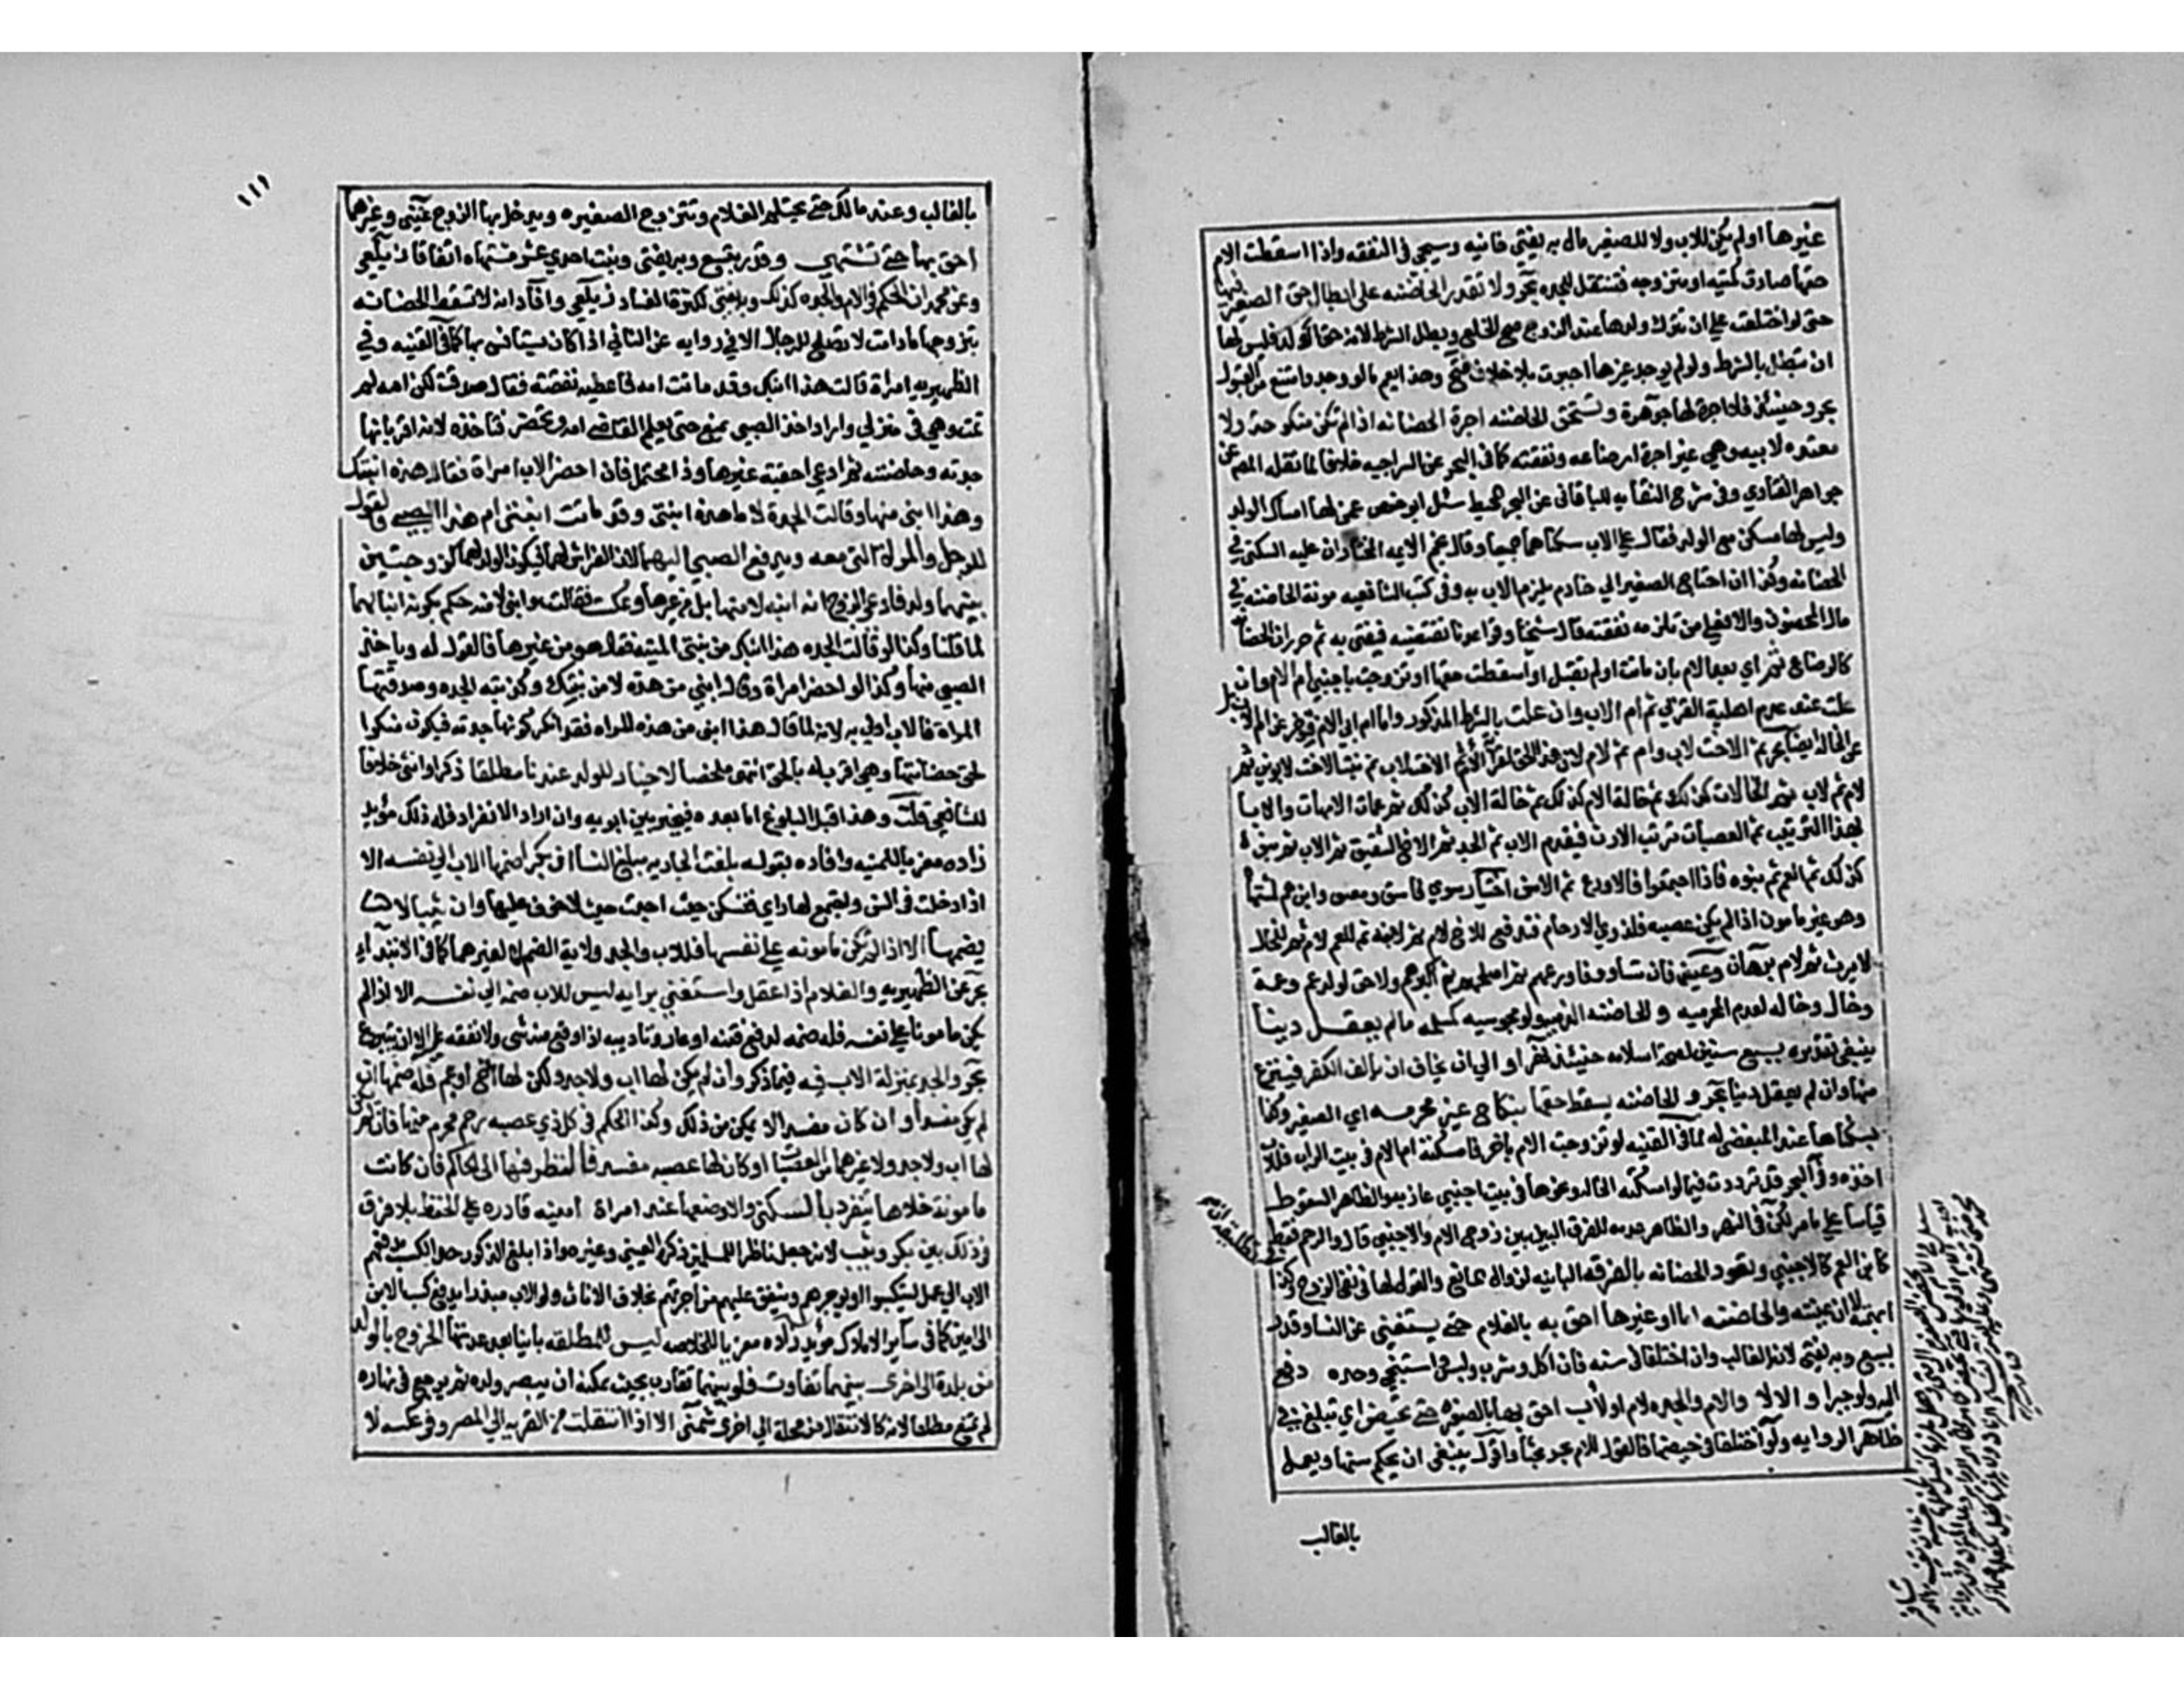 غيرها او لم يكن للاب ولا للصغير مال به يفتى خانيه وسيجي في النفقه واذا اسقطت الام
حقها صارت كميته او متزوجه فتنتقل للجده بحر ولا تقدر الحاضنه على ابطال حق الصغير فيها
حتى لو اختلعت على ان تترك ولدها عند الزوج صح الخلع وبطل الشرط لانه حق الولد فليس لها
ان تبطل بالشرط ولو لم يوجد غيرها اجبرت بلا خلاف فتح وهذا يعم ما لو وجد وامتنع من القبول
بحر وحينئذ فلا اجرة لها جوهرة وتستحق الحاضنه اجرة الحضانه اذا لم تكن منكوحة ولا
معتده لابيه وهي غير اجرة ارضاعه ونفقته كما في البحر عن السراجيه خلافا لما نقله المص عن
جواهر الفتاوي وفي شرح النقايه للباقاني عن البحر المحيط سئل ابو حفص عمن لها امساك الولد
وليس لها مسكن مع الولد فقال على الاب سكناهما جميعا وقال نجم الايمه المختار ان عليه السكنى في
الحضانه وكذا ان احتاج الصغير الي خادم يلزم الاب به وفي كتب الشافعيه مونة الحاضنه في
مال المحضون والا فعلى من تلزمه نفقته قال شيخنا وقواعدنا تقتضيه فيفتى به ثم حرر ان الحضانه
كالرضاع ثم اي بعد الام بان ماتت او لم تقبل او اسقطت حقها او تزوجت باجنبي ام الام وان
علت عند عدم اهلية القربى ثم ام الاب وان علت بالشرط المذكور واما ام ابي الام فتؤخر عن ام الاب بل
عن الخاله ايضا بحر ثم الاخت لاب وام ثم لام لان هذا الحق لقرابة الام ثم الاخت لاب ثم بنت الاخت لابوين ثم
لام ثم لاب ثم الخالات كذلك ثم خالة الام كذلك ثم خالة الاب كذلك ثم عمات الامهات والابا
بهذا الترتيب ثم العصبات بترتيب الارث فيقدم الاب ثم الجد ثم الاخ الشقيق ثم لاب ثم بنوه
كذلك ثم العم ثم بنوه فاذا اجتمعوا فالاورع ثم الاسن اختيار سوي فاسق ومعتوه وابن عم لمشتهاة
وهو غير مامون اذا لم يكن عصبه فلذوي الارحام فتدفع للاخ لام ثم لابنه ثم للعم لام ثم للخال
لابوين ثم لام برهان وعيني فان تساووا فاورعهم ثم اصلحهم ثم اكبرهم ولا حق لولد عم وعمة
وخال وخاله لعدم المحرميه و للحاضنه الذميه ولو مجوسيه كمسلمه ما لم يعقل دينا
ينبغي تقديره بسبع سنين لصحة اسلامه حينئذ نهر او الي ان يخاف ان يالف الكفر فينزع
منها وان لم يعقل دينا بحر و للحاضنه يسقط حقها بنكاح غير محرمه اي الصغير وكذا
بسكناها عند المبغضين له لما في القنيه لو تزوجت الام باخر فامسكته ام الام في بيت الراب فللاب
اخذه وفي البحر قد ترددت فيما لو امسكته الخاله ونحوها في بيت اجنبي عازبه والظاهر السقوط
قياسا على ما مر لكن في النهر والظاهر عدمه للفرق البين بين زوج الام والاجنبي قال والرحم فقط
كابن العم كالاجنبي وتعود الحضانه بالفرقه الباينه لزوال المانع والقول لها في نفي الزوج وكذا
ابهمته لا ان عينته والحاضنه اما او غيرها احق به بالغلام حتى يستغني عن النسا وقدر
بسبع وبه يفتى لانه الغالب وان اختلفا في سنه فان اكل وشرب ولبس واستنجى وحده دفع
اليه ولو جبرا و الا لا والام والجده لام او لاب احق بها بالصغيره حتى تحيض اي تبلغ في
ظاهر الروايه ولو اختلفا في حيضها فالقول للام بحر بحثا واقول ينبغي ان يحكم سنها ويعمل
بالغالب
١١١
بالغالب وعند مالك حتى يحتلم الغلام وتتزوج الصغيره ويدخل بها الزوج عيني وغيرهما
احق بها حتى تشتهي وقدر بتسع وبه يفتى وبنت احدي عشر مشتهاه اتفاقا زيلعي
وعن محمد ان الحكم في الام والجده كذلك وبه يفتى لكثرة الفساد زيلعي وافاد انه لا تسقط الحضانه
بتزوجها ما دامت لا تصلح للرجال الا في روايه عن الثاني اذا كان يستانس بها كما في القنيه وفي
الظهيريه امراة قالت هذا ابنك وقد ماتت امه فاعطني نفقته فقال صدقت لكن امه لم
تمت وهي في منزلي واراد اخذ الصبي يمنع حتى يعلم القاضي امه وتحضر فتاخذه لانه اقر بانها
جدته وحاضنته ثم ادعى احقيه غيرها وذا محتمل فان احضر الاب امراة فقال هذه ابنتك
وهذا ابني منها وقالت الجدة لا ما هذه ابنتي وقد ماتت ابنتي ام هذا الصبي فالقول
للرجل والمراة التي معه ويدفع الصبي اليهما لان الفراش لهما فيكون الولد لهما كزوجين
بينهما ولد فادعى الزوج انه ابنه لا منها بل من غيرها وعكست فقالت هو ابني لا منه حكم بكونه ابنا لهما
لما قلنا وكذا لو قالت الجده هذا ابنك من بنتي الميته فقال هو من غيرها فالقول له وياخذ
الصبي منها وكذا لو احضر امراة وقال ابني من هذه لا من بنتك وكذبته الجده وصدقتها
المراة فالاب اولى به لانه لما قال هذا ابني من هذه المراه فقد انكر كونها جدته فيكون منكرا
لحق حضانتها وهي اقرت له بالحق انتهى ملخصا لا خيار للولد عندنا مطلقا ذكرا او انثى خلافا
للشافعي قلت وهذا قبل البلوغ اما بعده فيخير بين ابويه وان اراد الانفراد فله ذلك مؤيد
زاده معزيا للمنيه وافاده بقوله بلغت الجاريه مبلغ النسا ان بكرا ضمها الاب الي نفسه الا
اذا دخلت في السن واجتمع لها راي فتسكن حيث احبت حيث لا خوف عليها وان ثيبا لا
يضمها الا اذا لم تكن مامونه على نفسها فللاب والجد ولاية الضم لا لغيرهما كما في الابتداء
بحر عن الظهيريه والغلام اذا عقل واستغنى برايه ليس للاب ضمه الي نفسه الا اذا لم
يكن مامونا على نفسه فله ضمه لدفع فتنه او عار وتاديبه اذا وقع منه شي ولا نفقه عليه الا ان يتبرع
بحر والجد بمنزلة الاب فيه فيما ذكر وان لم يكن لها اب ولا جد ولكن لها اخ او عم فله ضمها ان
لم يكن مفسدا و ان كان مفسدا لا يمكن من ذلك وكذا الحكم في كل ذي عصبه رحم محرم منها فان لم يكن
لها اب ولا جد ولا غيرهما من العصبات او كان لها عصبه مفسد فالنظر فيها الى الحاكم فان كانت
مامونة خلاها تنفرد بالسكنى والا وضعها عند امراة امينه قادره على الحفظ بلا فرق
في ذلك بين بكر وثيب لانه جعل ناظرا للمسلمين ذكره العيني وغيره واذا بلغ الذكور حد الكسب يدفعهم
الاب الي عمل ليكسبوا او يوجرهم وينفق عليهم من اجرتهم بخلاف الاناث ولو الاب مبذرا يدفع كسب الابن
الى امين كما في سائر الاملاك مؤيد زاده معزيا للخلاصه ليس للمطلقه باينا بعد عدتها الخروج بالولد
من بلدة الى اخرى بينهما تفاوت فلو بينهما تقارب بحيث يمكنه ان يبصر ولده ثم يرجع في نهاره
لم تمنع مطلقا لانه كالانتقال من محلة الي اخرى شمني الا اذا انتقلت من القريه الي المصر وفي عكسه لا